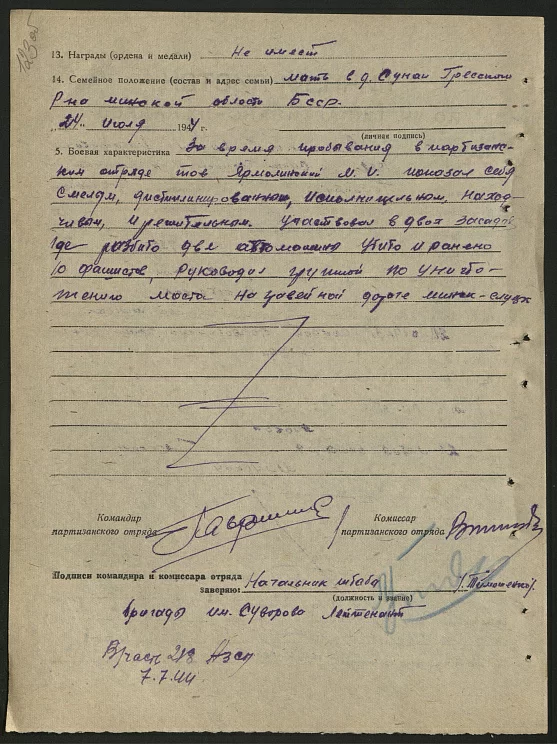 13. Награды (ордена и медали) Не имеет
14. Семейное положение (состав и адрес семьи) мать в д. Сунаи Гресский
Р на минской области Бсср.
„24“ Июля 1944 г.
(личная подпись)
5. Боевая характеристика За время пробывания в партизанс-
ком отряде тов. Ярмолинский М. И. показал себя
смелым, дисциплинированном, исполнительном, наход-
чивым, и решительном. Участвовал в двох засадах
где разбито две автомашины убито и ранено
10 фашистов, руководил группой по уничто-
жению моста на шасейной дороге минск-слуцк
Командир
партизанского отряда
Комиссар
партизанского отряда
Подписи командира и комиссара отряда
заверяю: Начальник штаба /Тимошенко/
(должность и звание)
бригады им. Суворова Лейтенант
7.7.44